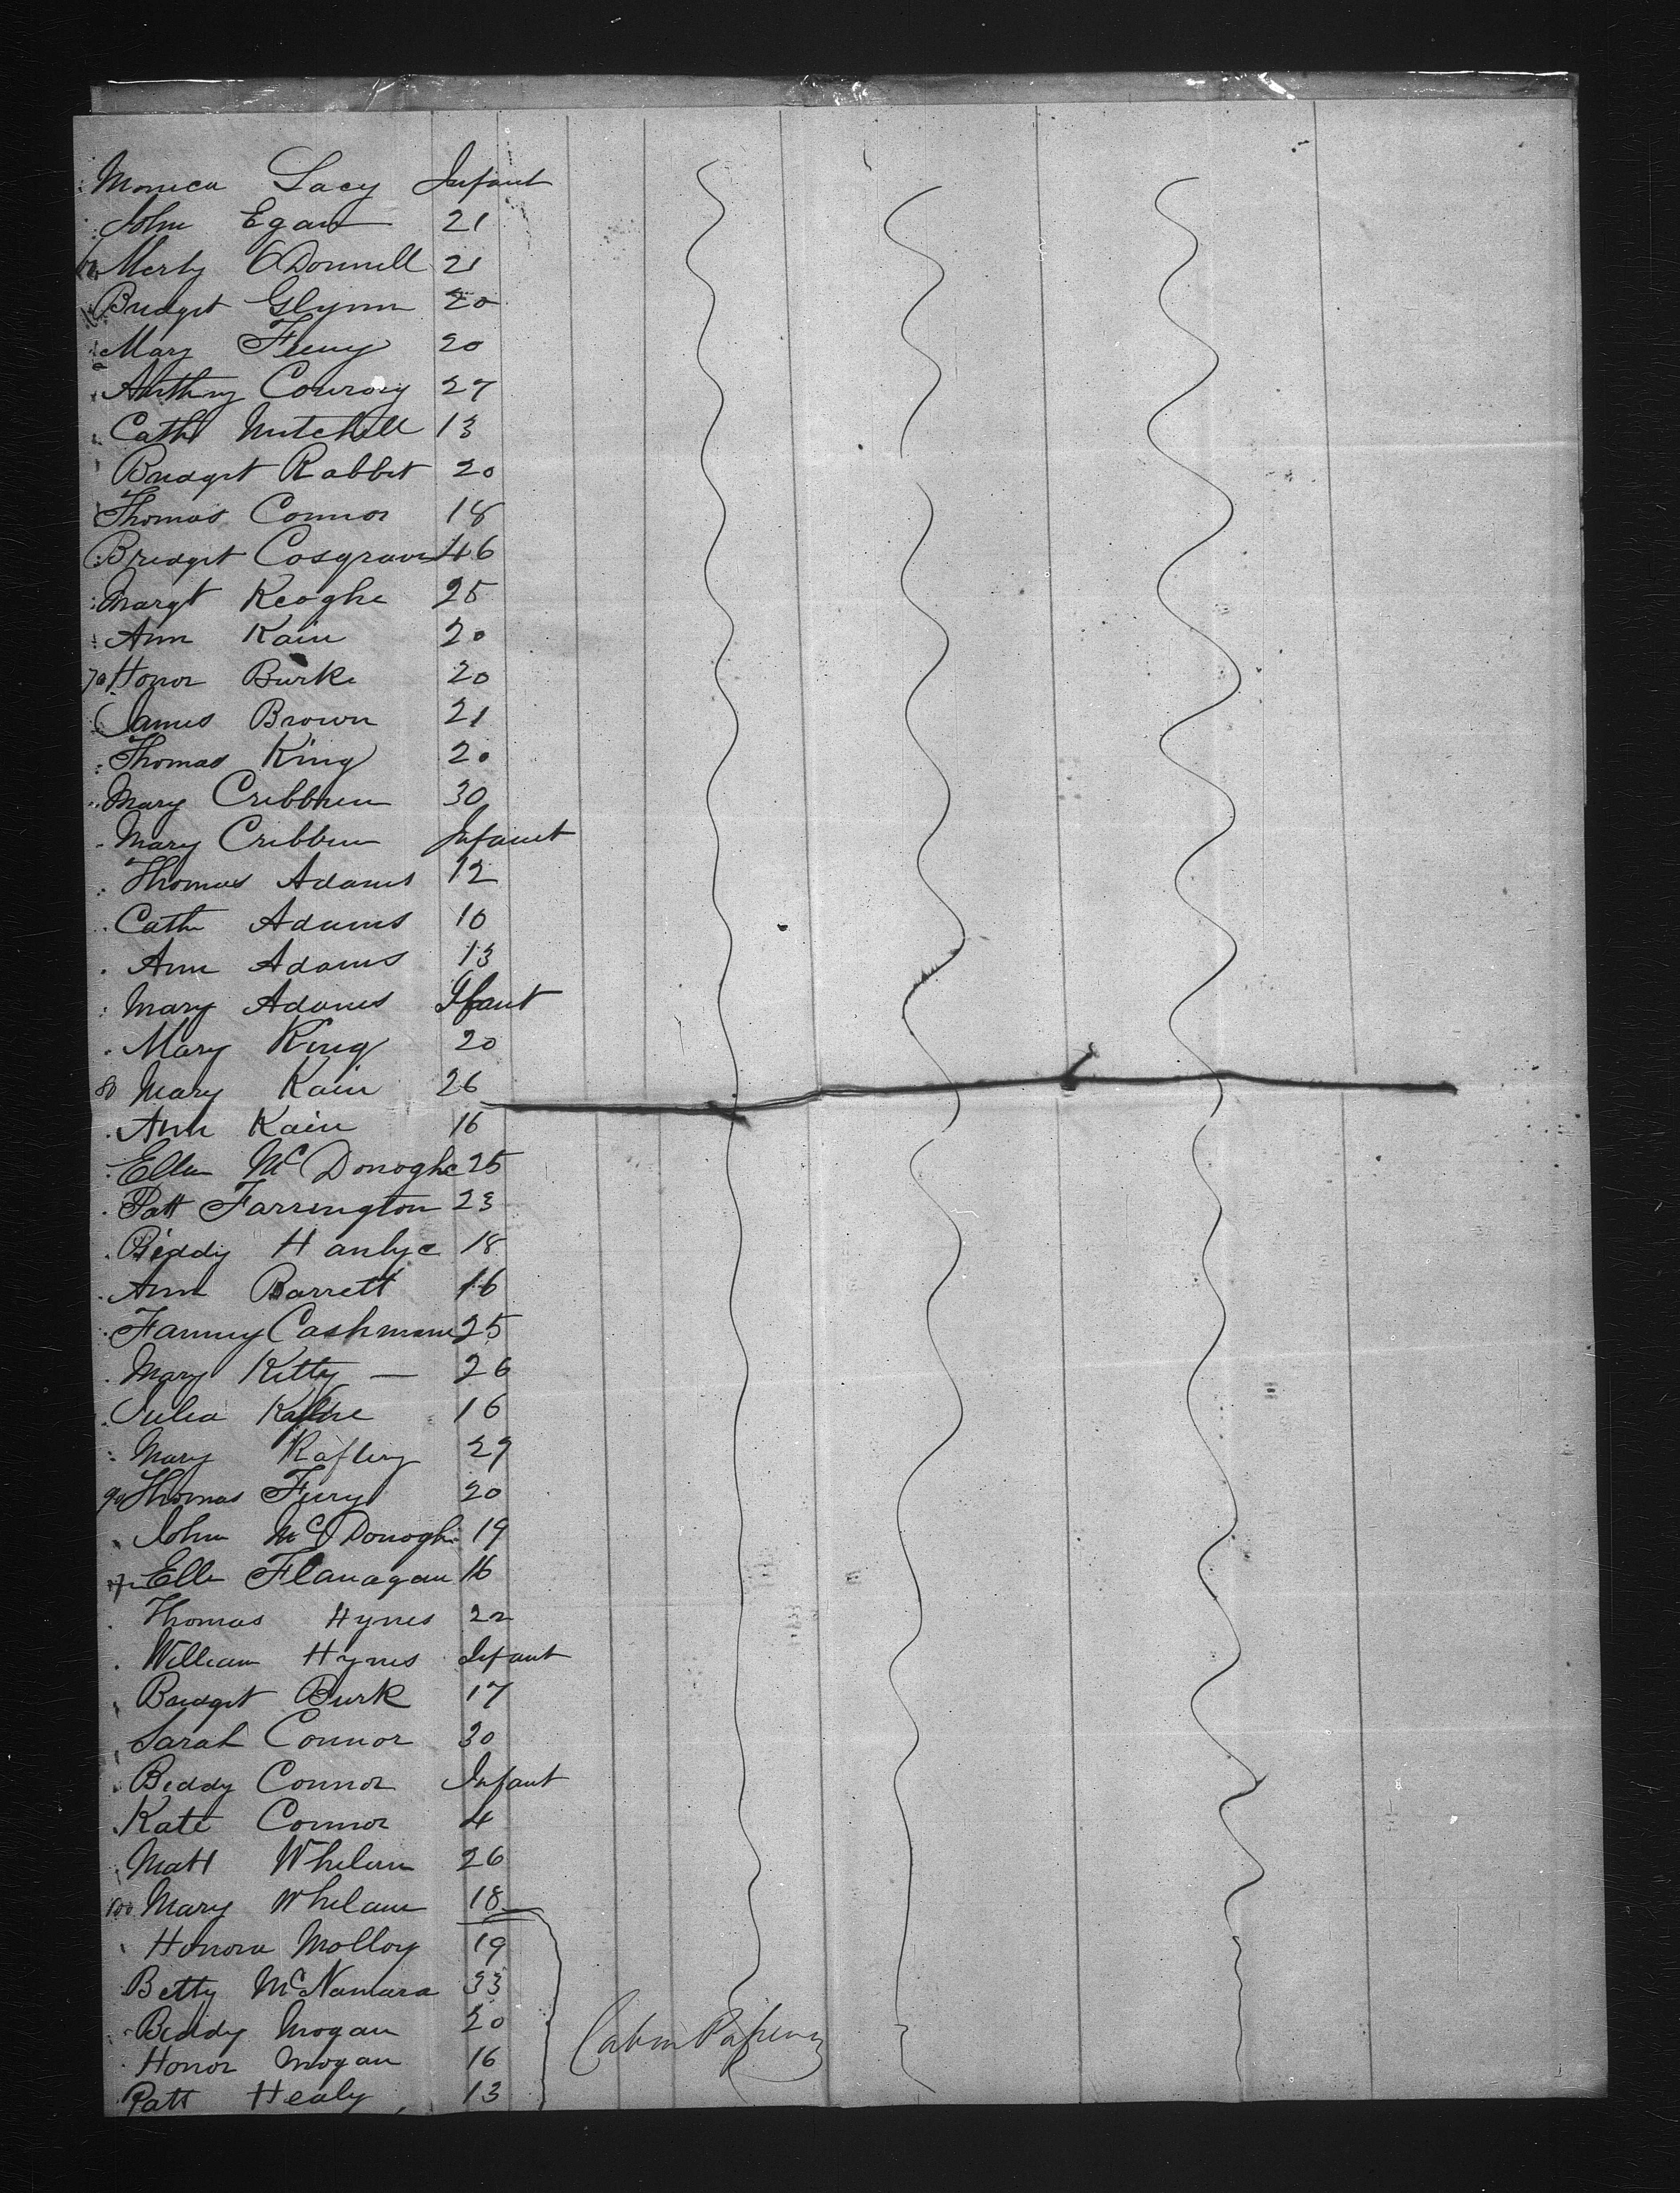 Monica Lacy Infant
John Egan 21
Merty O'Donnell 21
Bridget Glynn 20
Mary Feeny 20
Anthony Conroy 27
Cath Mitchell 13
Bridget Rabbit 20
Thomas Connor 18
Bridget Cosgrave 46
Margt Keoghe 25
Ann Kain 20
70 Honor Burke 20
James Brown 21
Thomas King 20
Mary Cribbin 30
Mary Cribbin Infant
Thomas Adams 12
Cath Adams 10
Ann Adams 13
Mary Adams Ifant
Mary King 20
80 Mary Kain 26
Ann Kain 16
Ellen McDonoghe 25
Patt Farrington 23
Biddy Hanlye 18
Ann Barrett 16
Fanny Cashmane 25
Mary Kitty — 26
Julia 16
Mary Raftery 29
90 Thomas Fury 20
John McDonogh 19
Ellen Flanagan 16
Thomas Hynes 22
William Hynes Infant
Bridget Burk 17
Sarah Connor 30
Biddy Connor Infant
Kate Connor 4
Matt Whelan 26
100 Mary Whelan 18
Honora Molloy 19
Betty McNamara 33
Biddy Mogan 20
Cabin
Honor Mogan 16
Patt Healy 13